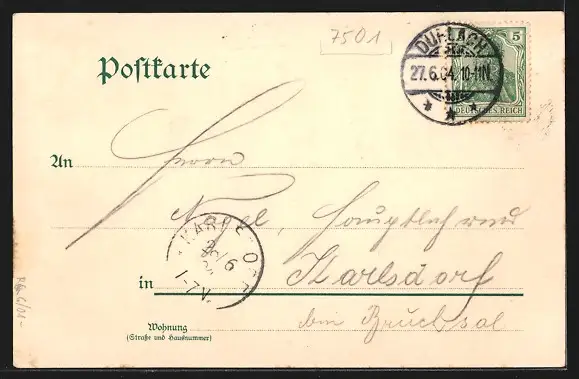 7501
DURLACH
27.6.04. 10-11N.
5
DEUTSCHES REICH
Postkarte
An Herrn
Hauptlehrer
in Karlsdorf
bei Bruchsal
Wohnung
(Straße und Hausnummer)